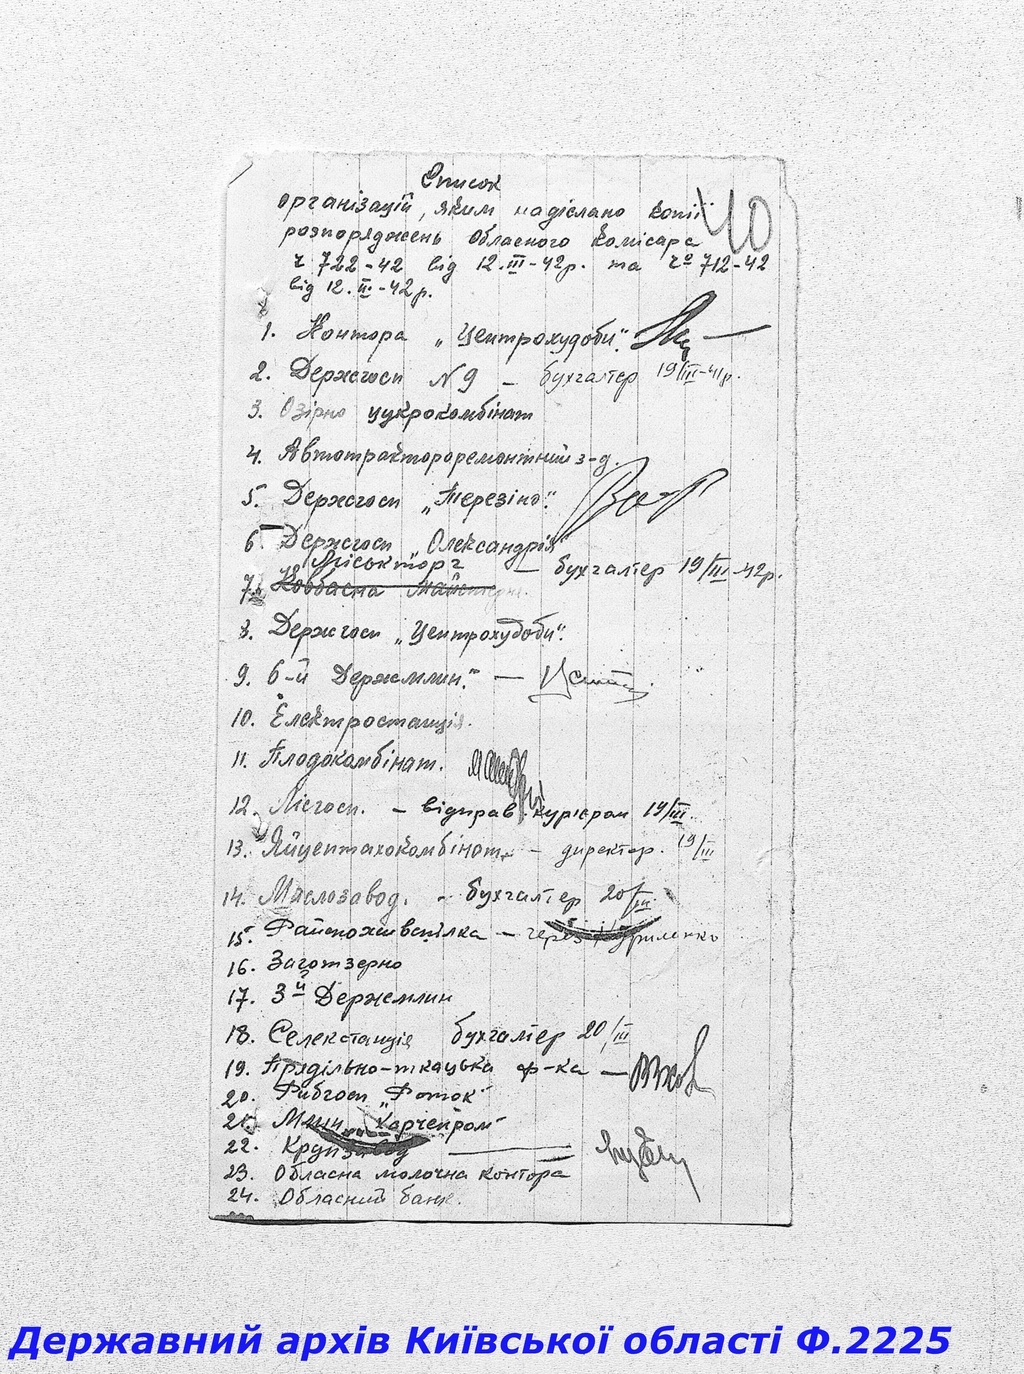 Список
організацій, яким надіслано копії
40
розпоряджень Обласного комісара
ч 722-42 від 12.III-42р. та чº 712-42
від 12.III-42р.
1. Контора „Центрохудоби".
2. Держгосп N 9 – бухгалтер 19/III-41р.
3. Озірно цукрокомбінат
4. Автотрактороремонтний з-д.
5. Держгосп „Терезіно".
6 Держгосп „Олександрія"
Міськторг – бухгалтер 19/III 42р.
7. Ковбасна майстерня.
8. Держгосп „Центрохудоби".
9. 6-й Держмлин." –
10. Електростанція.
11. Плодокомбінат.
12. Лісгосп. – відправ. курієром 19/III.
13. Яйцептахокомбінат. – директор. 19/III
14. Маслозавод. – бухгалтер 20/III.
15. Райспоживспілка – через Куриленко
16. Заготзерно
17. 3й Держмлин
18. Селекстанція бухгалтер 20/III
19. Прядільно-ткацька ф-ка –
20. Рибгосп „Роток"
21. Млин „Харчепром"
22. Крупзавод
23. Обласна молочна контора
24. Обласний банк.
Державний архів Київської області Ф.2225